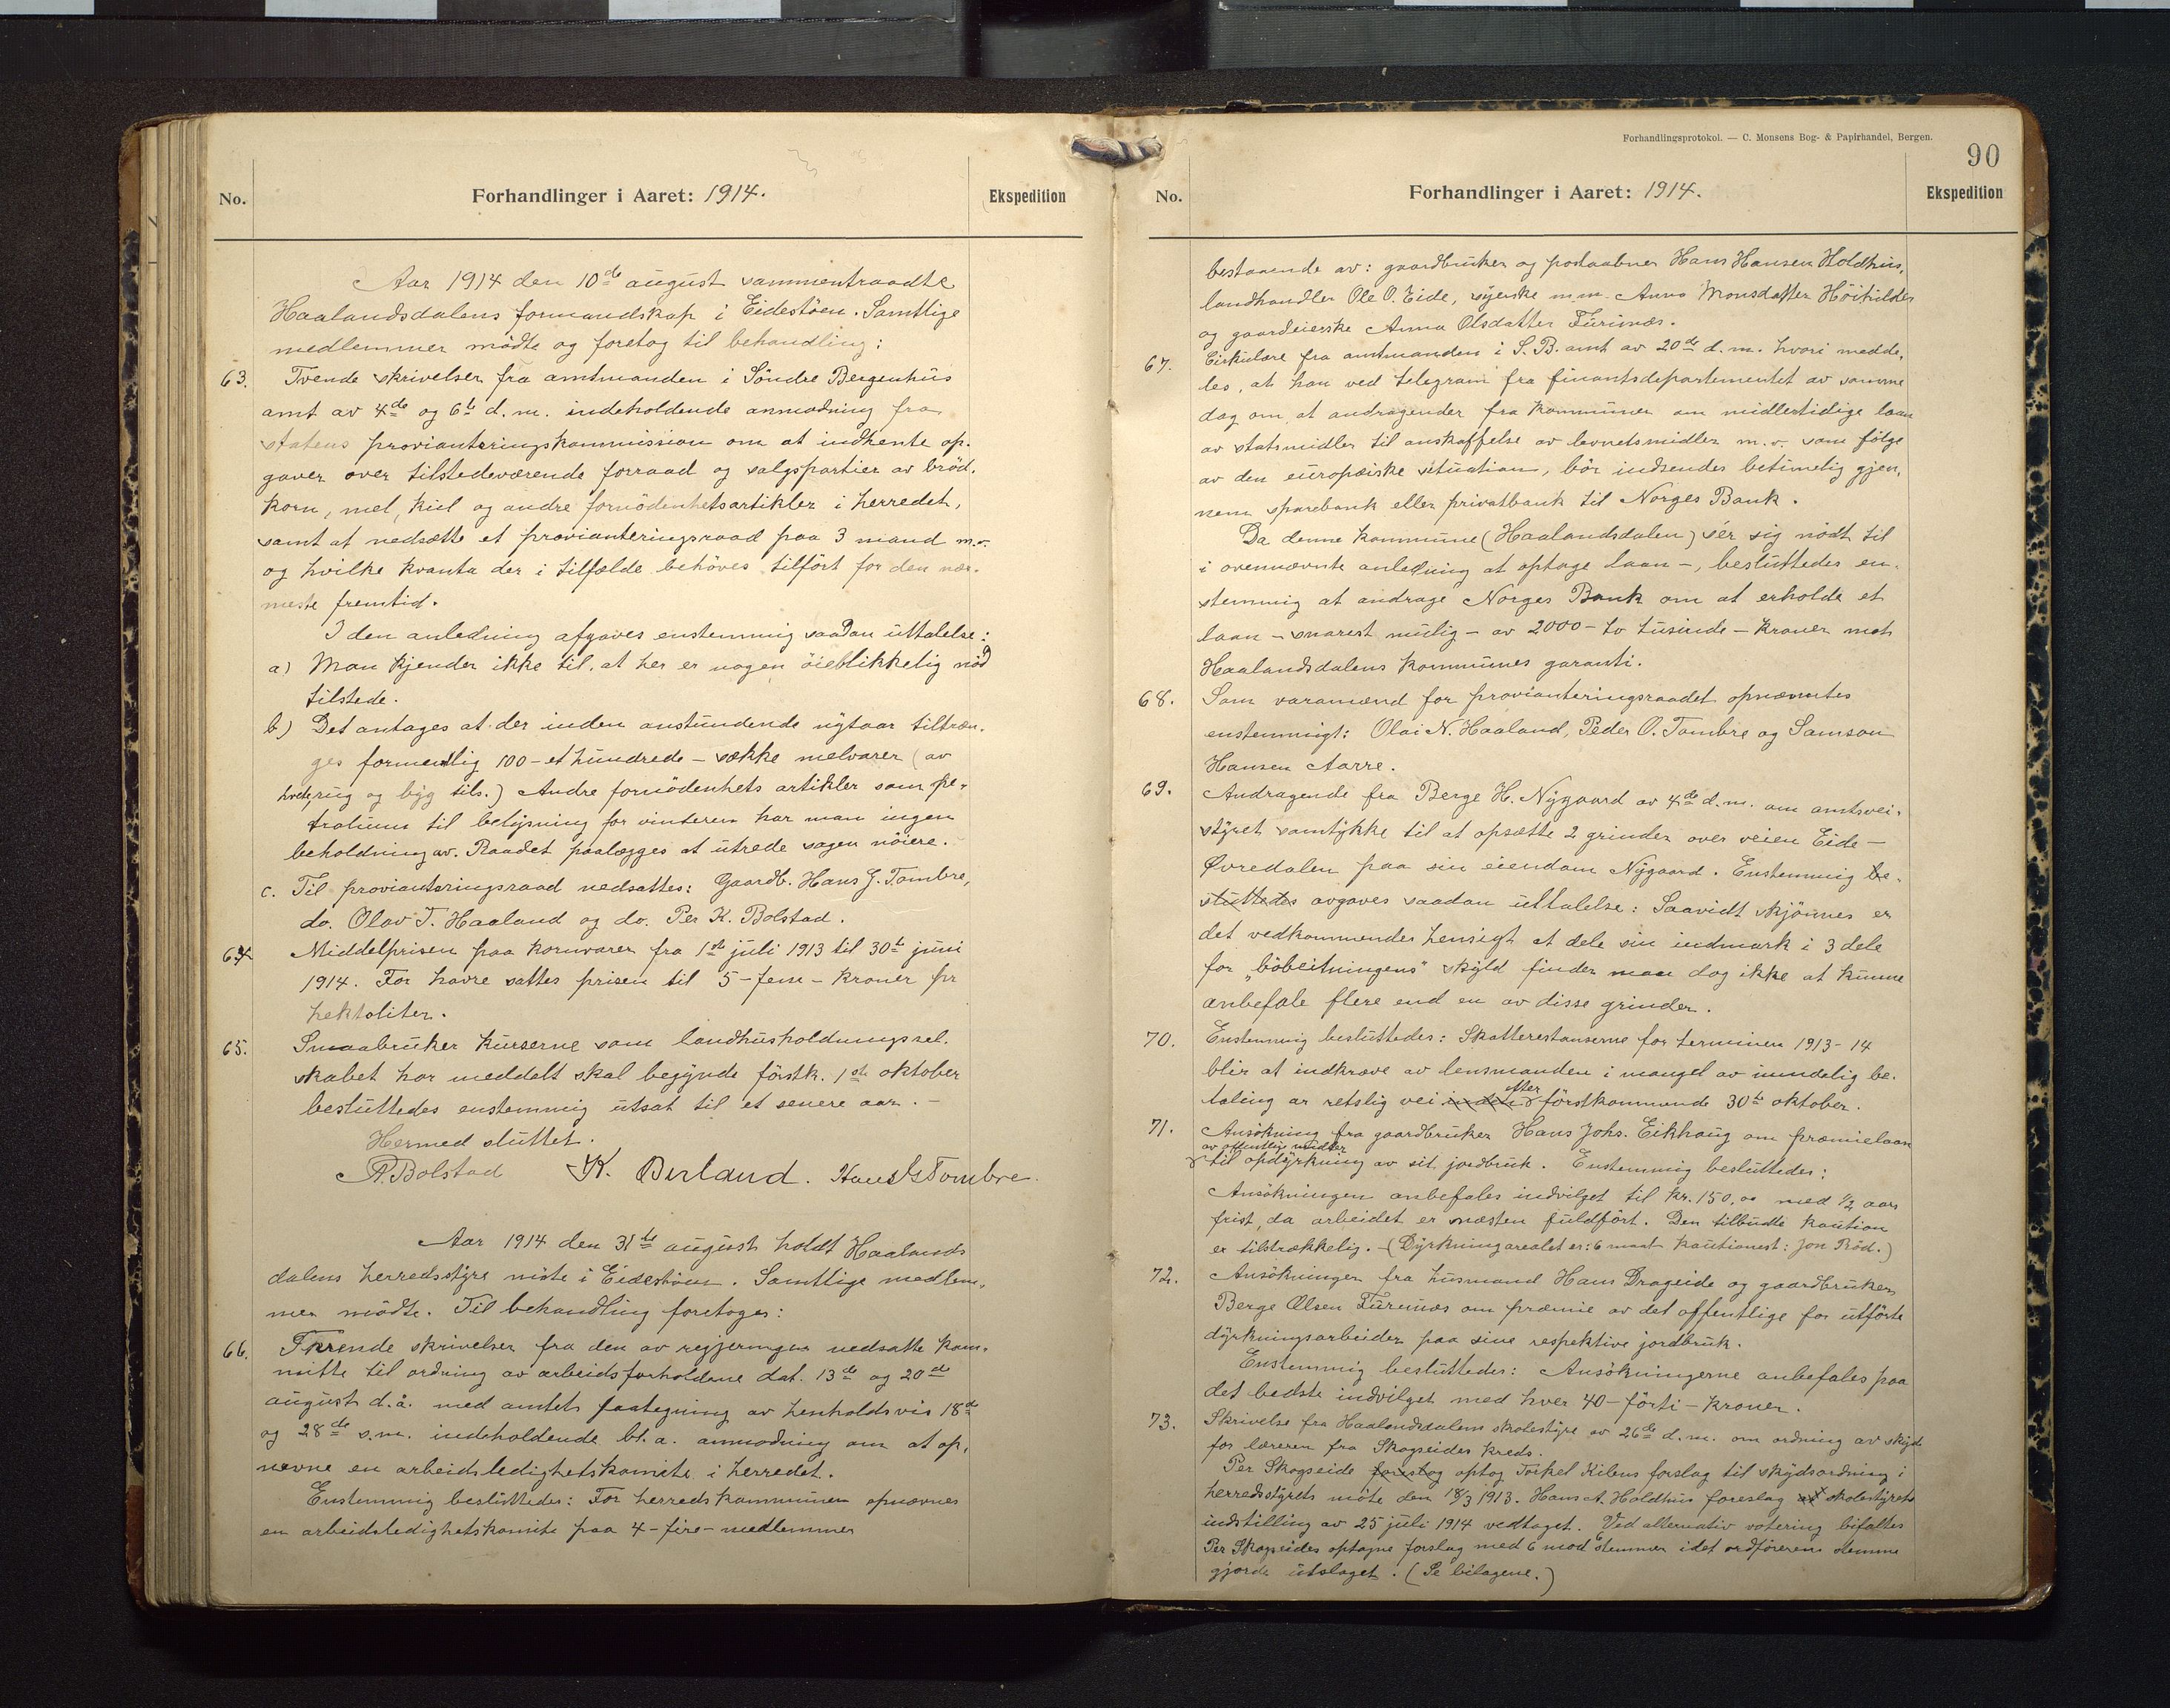 No.
Forhandlinger i Aaret: 1914.
Ekspedition
Aar 1914 den 10de august sammentraadte
Haalandsdalens formandskap i Eidestöen. Samtlige
medlemmer mödte og foretog til behandling:
63. Tvende skrivelser fra amtmanden i Söndre Bergenhus
amt av 4de og 6te d.m. indeholdende anmodning fra
statens provianteringskommission om at indhente op-
gaver over tilstedeværende forraad og salgspartier av bröd-
korn, mel, kul og andre fornödenhetsartikler i herredet,
samt at nedsætte et provianteringsraad paa 3 mand m.v.
og hvilke kvanta der i tilfælde behöves tilfört for den nær-
meste fremtid.
I den anledning afgaves enstemmig saadan uttalelse:
a) Man kjender ikke til, at her er nogen öieblikkelig nöd
tilstede.
b) Det antages at der inden anstundende nytaar tiltræn-
ges formentlig 100 - et hundrede - sække melvarer (av
hvete, rug og byg tils.) Andre fornödenhets artikler som pe-
troleum til belysning for vinteren har man ingen
beholdning av. Raadet paalægges at utrede sagen nöiere.
c. Til provianteringsraad nedsattes: Gaardb. Hans G. Tombre,
do. Olav T. Haaland og do. Per K. Bolstad.
64. Middelprisen paa kornvarer fra 1ste juli 1913 til 30te juni
1914. For havre sattes prisen til 5 - fem - kroner pr
hektoliter.
65. Smaabruker kurserne som landhusholdningssel-
skabet har meddelt skal begynde förstk. 1ste oktober
besluttedes enstemmig utsat til et senere aar. -
Hermed sluttet.
P. Bolstad K. Berland. Hans G Tombre.
Aar 1914 den 31te august holdt Haalands
dalens herredsstyre möte i Eidestöen. Samtlige medlem-
mer mödte. Til behandling foretoges:
66. Tvende skrivelser fra den av regjeringen nedsatte kom-
mitte til ordning av arbeidsforholdene dat. 13de og 20de
august d.å. med amtets paategning av henholdsvis 18de
og 28de s.m. indeholdende bl.a. anmodning om at op-
nevne en arbeidsledighetskomite i herredet.
Enstemmig besluttedes: For herredskommunen opnævnes
en arbeidsledighetskomite paa 4 - fire - medlemmer
Forhandlingsprotokol. — C. Monsens Bog- & Papirhandel, Bergen.
90
No.
Forhandlinger i Aaret: 1914.
Ekspedition
bestaaende av: gaardbruker og postaabner Hans Hansen Holdhus,
landhandler Ole O. Eide, syerske m.m. Anna Monsdatter Höifilder
og gaardeierske Anna Olsdatter Furunes.
67. Cirkulære fra amtmanden i S.B. amt av 20de d.m. hvori medde-
les, at han ved telegram fra finantsdepartementet av samme
dag om at andragender fra kommuner om midlertidige laan
av statsmidler til anskaffelse av levnetsmidler m.v. som fölge
av den europæiske situation, bör indsendes betimelig gjen-
nem sparebank eller privatbank til Norges Bank.
Da denne kommune (Haalandsdalen) sér sig nödt til
i ovennævnte anledning at optage laan -, besluttedes en-
stemmig at andrage Norges Bank om at erholde et
laan - snarest mulig - av 2000 - to tusinde - kroner mot
Haalandsdalens kommunes garanti.
68. Som varamænd for provianteringsraadet opnævntes
enstemmigt: Olai N. Haaland, Peder O. Tombre og Samson
Hansen Aarre.
69. Andragende fra Berge H. Nygaard av 4de d.m. om amtsvei-
styret samtykke til at opsætte 2 grinder over veien Eide -
Øvredalen paa sin eiendom Nygaard. Enstemmig be-
sluttedes avgaves saadan uttalelse: Saavidt skjönnes er
det vedkommendes hensigt at dele sin indmark i 3 dele
for "böbeitningens" skyld finder man dog ikke at kunne
anbefale flere end en av disse grinder.
70. Enstemmig besluttedes: Skatterestanserne for terminen 1913-14
blir at indkræve av lensmanden i mangel av mindelig be-
taling ar retslig vei inden efter förstkommende 30te oktober.
71. Ansökning fra gaardbruker Hans Johs. Eikhaug om præmielaan
av offentlige midler
til opdyrkning av sit jordbruk. Enstemmig besluttedes:
Ansökningen anbefales indvilget til kr. 150,00 med 1/2 aars
frist, da arbeidet er næsten fuldfört. Den tilbudte kaution
er tilstrækkelig. - (Dyrkningsarealet er: 6 maal Kautionist: Jon Röd.)
72. Ansökninger fra husmand Hans Drageide og gaardbruker
Berge Olsen Furunes om præmie av det offentlige for utförte
dyrkningsarbeider paa sine respektive jordbruk.
Enstemmig besluttedes: Ansökningerne anbefales paa
det bedste indvilget med hver 40 - förti - kroner.
73. Skrivelse fra Haalandsdalens skolestyre av 26de d.m. om ordning av skyds
for læreren fra Skogseides kreds.
Per Skogseide foreslog optog Torkel Kilens forslag til skydsordning i
herredsstyrets möte den 18/3 1913. Hans A. Holdhus foreslog skolestyrets
indstilling av 25 juli 1914 vedtaget. Ved alternativ votering bifaltes
Per Skogseides optagne forslag med 6 mod 6 stemmer idet ordförerens stemme
gjorde utslaget. (Se bilagene.)